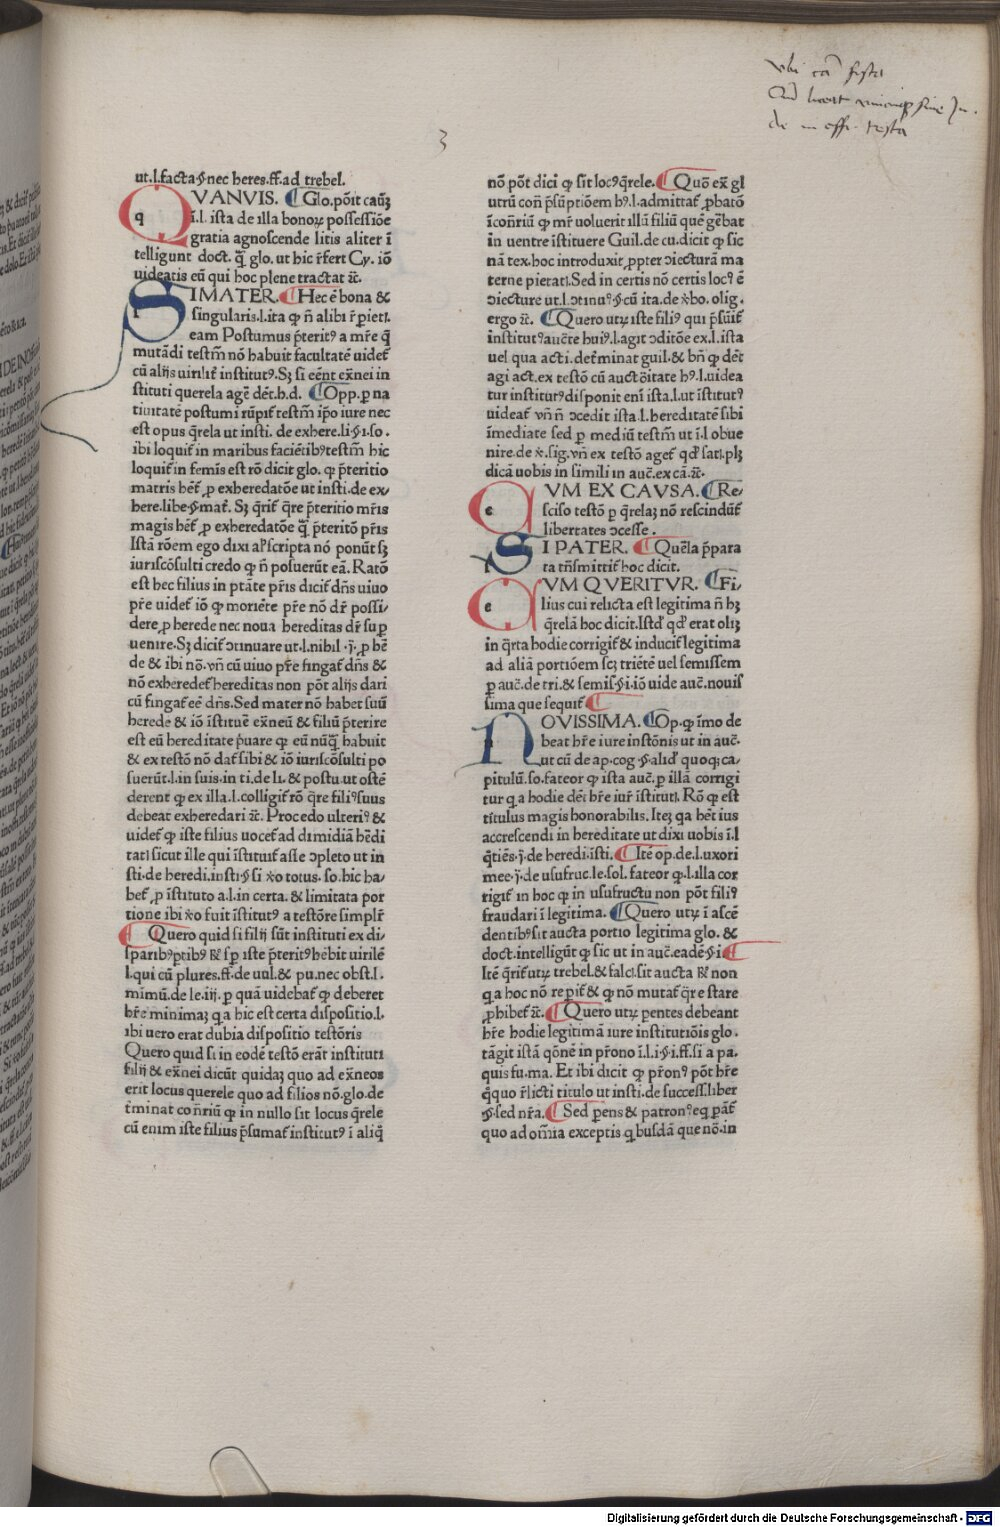 3
ut.l.facta.§.nec heres.ff.ad trebel.
QVANVIS. Glo.põit cauꝫ
ĩ.l. ista de illa bonoꝝ possessiõe
gratia agnoscende litis aliter ĩ
telligunt doct. q̃ glo. ut hic r̃fert Cy. iõ
uideatis eũ qui hoc plene tractat ⁊c̃.
SI MATER. Hec ẽ bona &
singularis.l.ita ꝙ ñ alibi r̃perit.
eam Postumus p̃terit⁹ a mr̃e q̃
mutãdi testm̃ nõ habuit facultatẽ uidet̃
cũ alijs uirilit̃ institut⁹. Sꝫ si eẽnt ex̃nei in
stituti querela agẽ dẽt.h.d. Opp. ꝑ na
tiuitatẽ postumi rũpit̃ testm̃ ip̃o iure nec
est opus q̃rela ut insti. de exhere.li.§.i.so.
ibi loquit̃ in maribus faciẽtib⁹testm̃ hic
loquit̃ in femis est rõ dicit glo. ꝙ p̃teritio
matris hẽt̃ ꝓ exheredatõe ut insti.de ex/
here.libe.§.mat̃. Sꝫ q̃rit̃ q̃re p̃teritio mr̃is
magis hẽt̃ ꝓ exheredatõe q̃ p̃teritõ pr̃is
Istã rõem ego dixi al̃ scripta nõ ponũt sꝫ
iuriscõsulti credo ꝙ ñ posuerũt eã. Ratõ
est hec filius in ptãte pr̃is dicit̃ dñs uiuo
pr̃e uidet̃ iõ ꝙ moriẽte pr̃e nõ dr̃ possi/
dere ꝓ herede nec noua hereditas dr̃ suꝑ
uenire. Sꝫ dicit̃ ɔtinuare ut.l.nihil .j. ꝓ hẽ
de & ibi nõ. vñ cũ uiuo pr̃e fingat̃ dñs &
nõ exheredet̃ hereditas non põt alijs dari
cũ fingat̃ eẽ dñs. Sed mater nõ habet suũ
herede & iõ ĩstituẽ ex̃neũ & filiũ p̃terire
est eũ hereditate p̃uare ꝙ eũ nũq̃ habuit
& ex testõ nõ dat̃ sibi & iõ iuriscõsulti po
suerũt.l.in suis.in ti.de li. & postu.ut ostẽ
derent ꝙ ex illa.l.colligit̃ rõ q̃re fili⁹suus
debeat exheredari ⁊c̃. Procedo ulteri⁹ &
uidet̃ ꝙ iste filius uocet̃ ad dimidiã hẽdi
tatĩ sicut ille qui ĩstituit̃ asse ɔpleto ut in
sti.de heredi.insti.§.si ṽo totus. so. hic ha/
bet̃ ꝓ ĩstituto a.l.in certa. & limitata por
tione ibi ṽo fuit ĩstitut⁹ a testõre simplr̃
Quero quid si filij sũt instituti ex di/
sparib⁹ptib⁹ & sꝑ iste p̃terit⁹hẽbit uirilẽ
l.qui cũ plures.ff.de uul.& pu.nec obst.l.
mimũ.de le.iij. ꝑ quã uidebat̃ ꝙ deberet
hr̃e minimaꝫ q̃a hic est certa dispositio.l.
ibi uero erat dubia dispositio testõris
Quero quid si in eodẽ testõ erãt instituti
filij & ex̃nei dicũt quidaꝫ quo ad ex̃neos
erit locus querele quo ad filios nõ.glo.de
t̃minat coñriũ ꝙ in nullo sit locus q̃rele
cũ enim iste filius p̃sumat̃ institut⁹ ĩ aliq̃
nõ põt dici ꝙ sit loc⁹q̃rele. Quõ ex̃ gl
utrũ coñ p̃sũptiõem h⁹.l.admittat̃ ꝓbatõ
ĩcoñriũ ꝙ mr̃ uoluerit illũ filiũ quẽ gẽbat
in uentre ĩstituere Guil.de cu.dicit ꝙ sic
nã tex.hoc introduxit ꝓpter ɔiecturã ma
terne pietatĩ.Sed in certis nõ certis loc⁹ ẽ
ɔiecture ut.l.ɔtinu⁹.§.cũ ita.de ṽbo. olig.
ergo ⁊c̃. Quero utꝝ iste fili⁹ qui p̃sũit̃
institut⁹auc̃te hui⁹.l.agit ɔditõe ex.l.ista
uel qua acti.det̃minat guil.& bñ ꝙ dẽt
agi act.ex testõ cũ auctõitate h⁹.l.uidea
tur institut⁹disponit eni ista.l.ut ĩstitut⁹
uideat̃ vñ ñ ɔcedit ista.l.hereditatẽ sibi
ĩmediate sed ꝑ mediũ testm̃ ut ĩ.l obue
nire.de ṽ.sig.vñ ex testõ aget̃ qđ sati.plꝫ
dicã uobis in simili in auc̃.ex cã.⁊c̃.
CVM EX CAVSA. Re/
sciso testõ ꝑ q̃relaꝫ nõ rescindũt̃
libertates ɔcesse.
SI PATER. Quẽla p̃para
ta tñsmittit̃ hoc dicit.
CVM QVERITVR. Fi/
lius cui relicta est legitima ñ hꝫ
q̃relã hoc dicit.Istđ qđ erat oliꝫ
in q̃rta hodie corrigit̃ & inducit̃ legitima
ad aliã portiõem scꝫ triẽtẽ uel semissem
ꝑ auc̃.de tri.& semis.§.i iõ uide auc̃.nouis
sima que sequit̃
NOVISSIMA. Op.ꝙ ĩmo de
beat hr̃e iure instõnis ut in auc̃.
ut cũ de ap.cog.§.aliđ quoq; ca/
pitulũ.so.fateor ꝙ ista auc̃.ꝑ illã corrigi
tur q̃a hodie dẽt hr̃e iur̃ ĩstituti. Rõ ꝙ est
titulus magis honorabilis. Iteꝫ q̃a hẽt ius
accrescendi in hereditate ut dixi uobis ĩ.l
q̃tiẽs.j.de heredi.ĩsti. Itẽ op.de.l.uxori
mee.j.de usufruc.le.sol. fateor ꝙ.l.illa cor
rigit̃ in hoc ꝙ in usufructu non põt fili⁹
fraudari ĩ legitima. Quero utꝝ ĩ ascẽ
dentib⁹sit aucta portio legitima glo. &
doct.intelligũt ꝙ sic ut in auc̃.eadẽ.§.i.
Itẽ q̃rit̃ utꝝ trebel.& falci.sit aucta & non
q̃a hoc nõ repit̃ & ꝙ nõ mutat̃ q̃re stare
ꝓhibet̃ ⁊c̃. Quero utꝝ pentes debeant
hr̃e hodie legitimã iure institutiõis glo.
tãgit istã qõnẽ in pr̃ono ĩ.l.i.§.i.ff.si a pa.
quis fu.ma. Et ibi dicit ꝙ pr̃on⁹ põt hr̃e
q̃quo r̃licti titulo ut insti.de success.liber
§.sed nr̃a. Sed pens & patron⁹eq̃ pãt̃
quo ad om̃ia exceptis q̃busdã que nõ.in
Digitalisierung gefördert durch die Deutsche Forschungsgemeinschaft - DFG